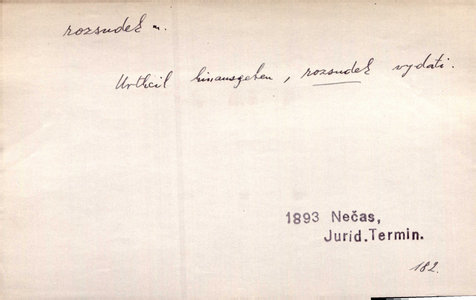 rozsudek m.
Urtheil hinausgeben, rozsudek vydati.
1893 Nečas,
Jurid.Termin.
182.